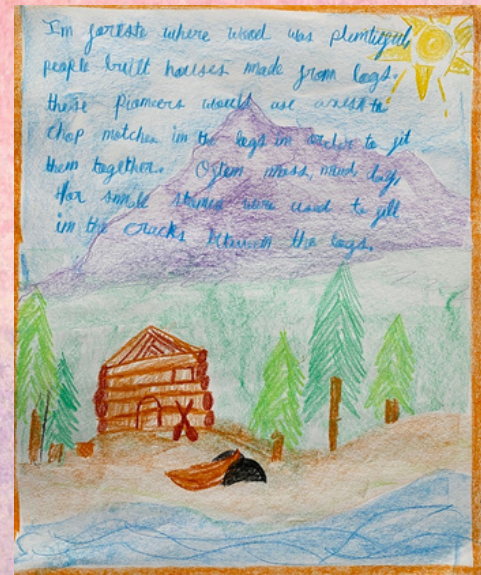 In forests where wood was plentiful,
people built houses made from logs.
these pioneers would use axes to
chop notches in the logs in order to fit
them together. Often moss, mud, clay,
or small stones were used to fill
in the cracks between the logs.